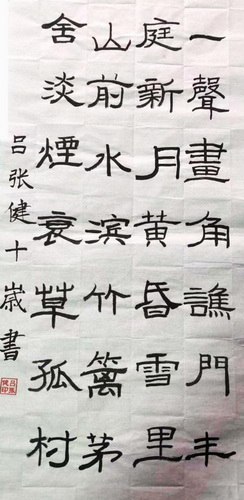 一聲畫角譙門半
庭新月黄昏雪里
山前水滨竹篱茅
舍淡煙衰草孤村
吕张健十嵗書